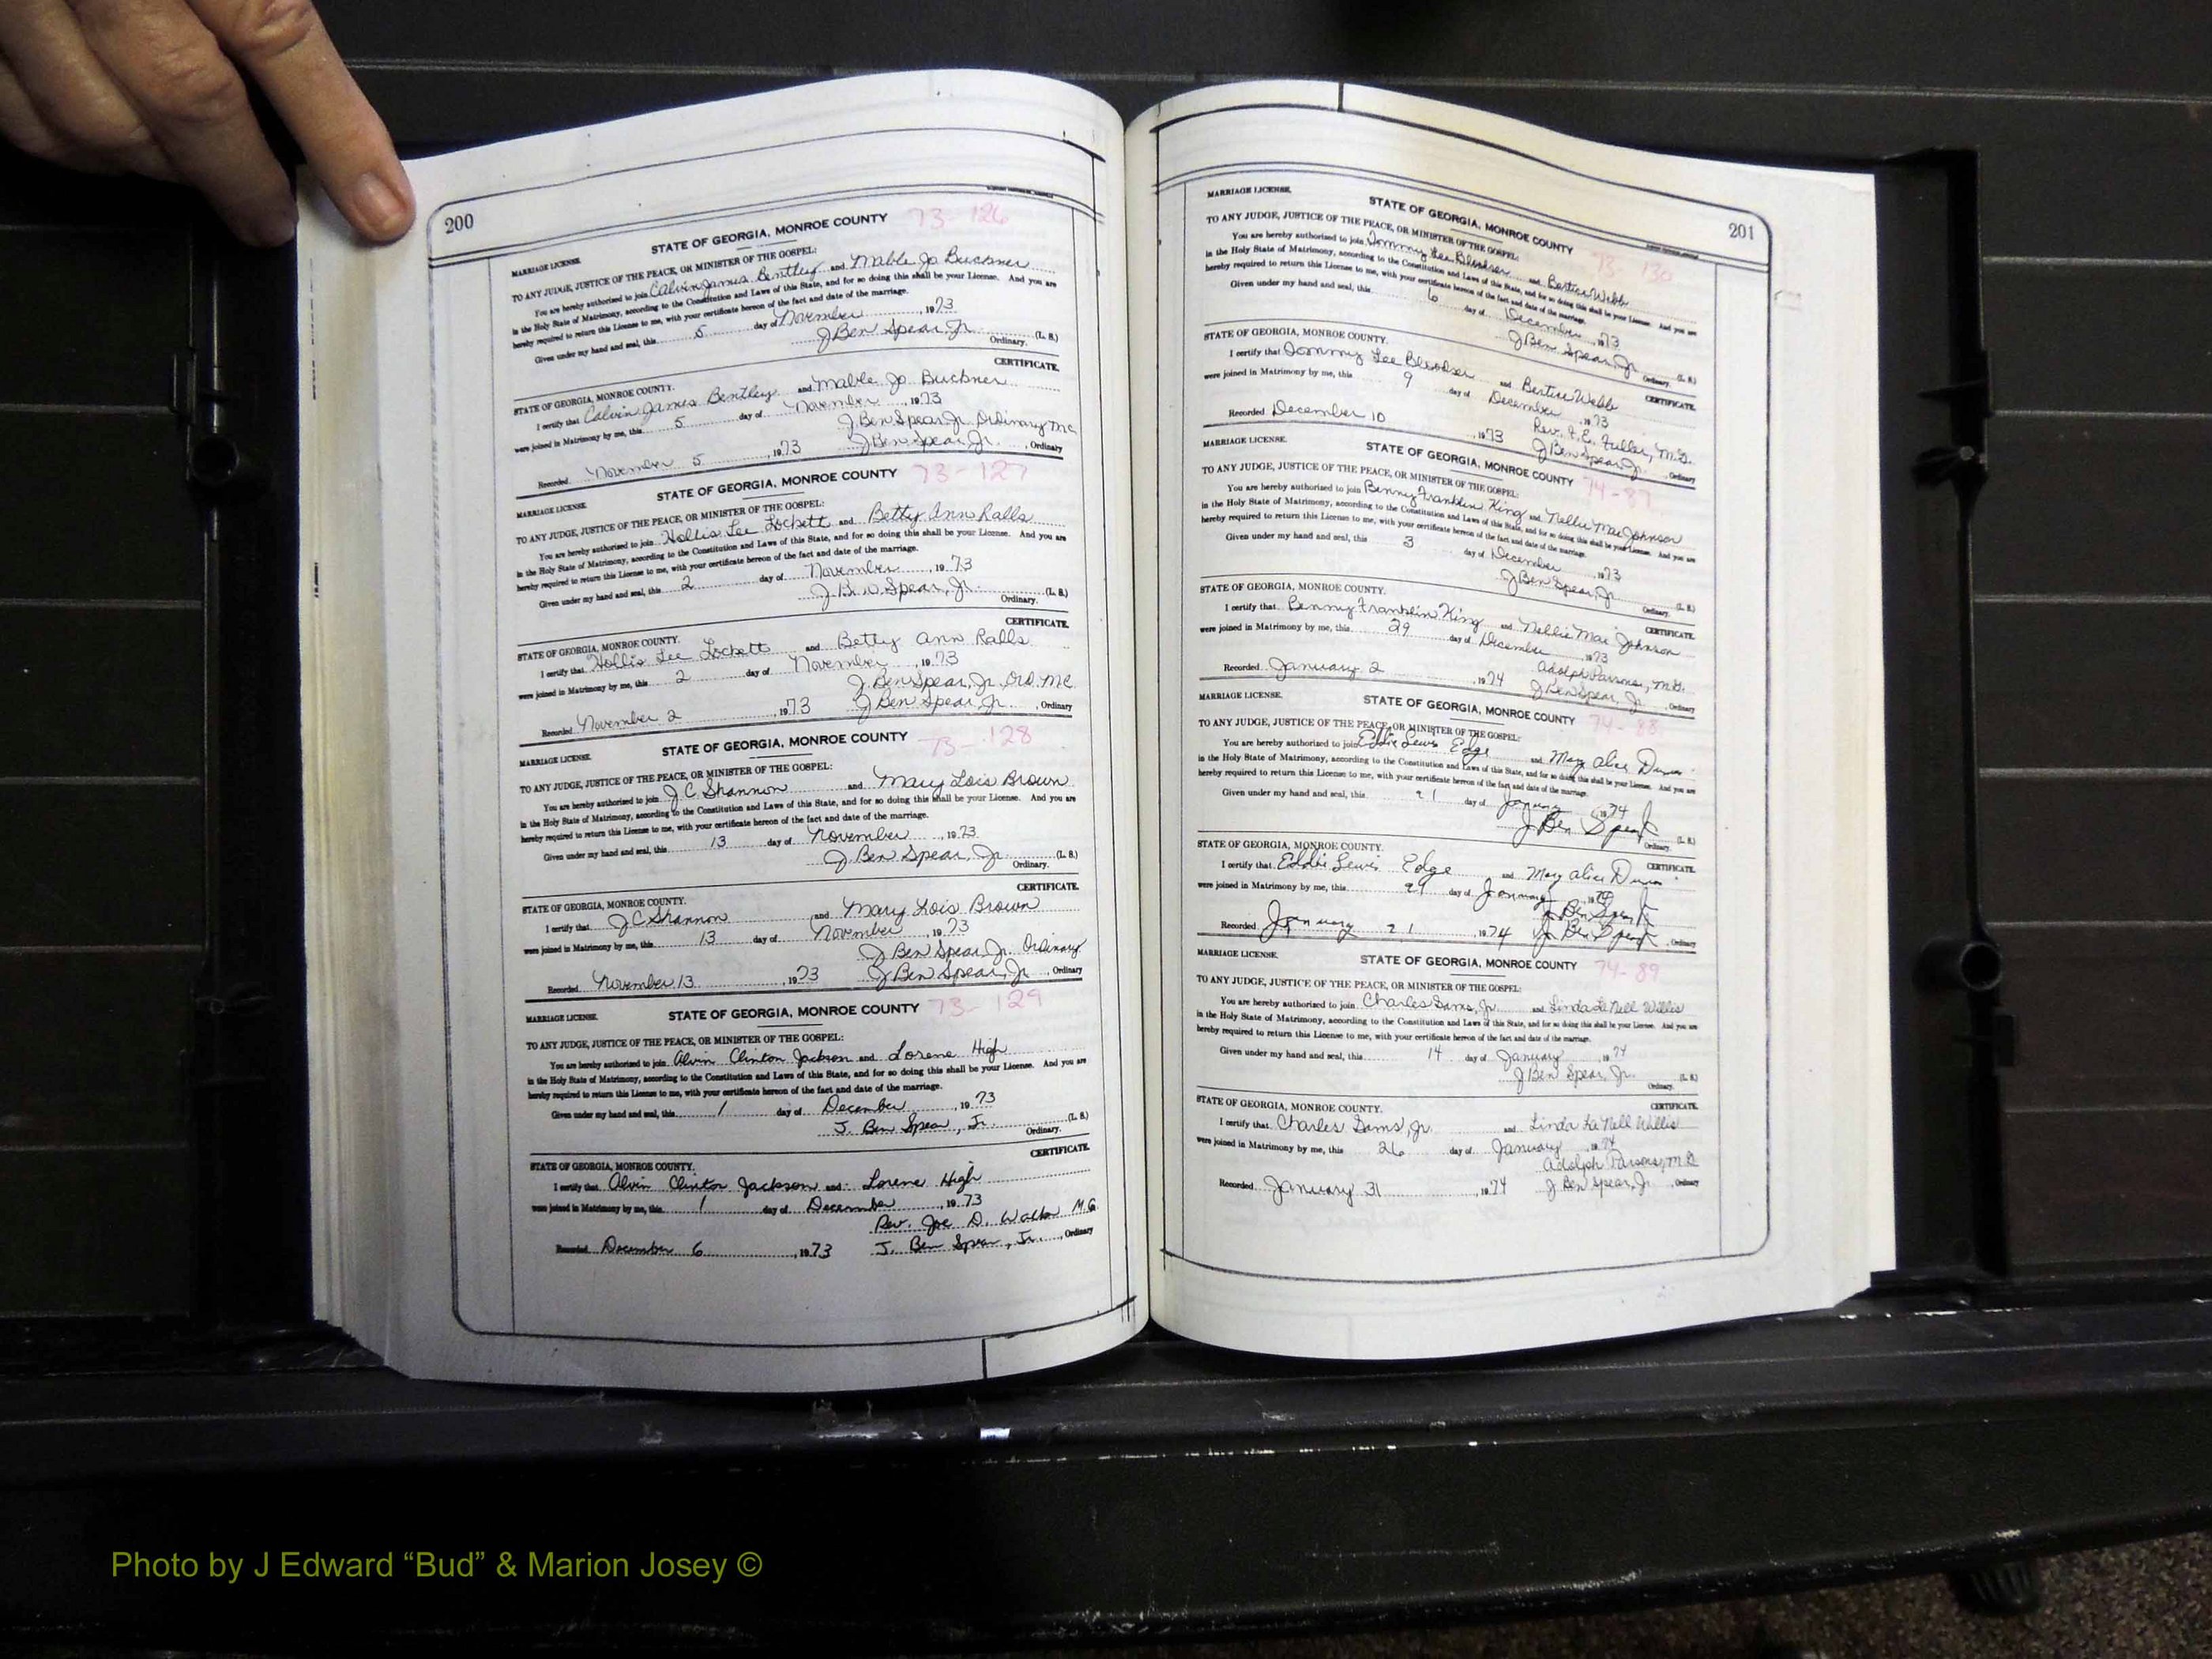 200
STATE OF GEORGIA, MONROE COUNTY 73-126
MARRIAGE LICENSE.
TO ANY JUDGE, JUSTICE OF THE PEACE, OR MINISTER OF THE GOSPEL:
You are hereby authorized to join Calvin James Bentley and Mable Jo Buckner
in the Holy State of Matrimony, according to the Constitution and Laws of this State, and for so doing this shall be your License. And you are
hereby required to return this License to me, with your certificate hereon of the fact and date of the marriage.
Given under my hand and seal, this 5 day of November, 1973
J Ben Spear, Jr. (L. S.)
Ordinary.
CERTIFICATE.
STATE OF GEORGIA, MONROE COUNTY.
I certify that Calvin James Bentley and Mable Jo Buckner
were joined in Matrimony by me, this 5 day of November, 1973
J. Ben Spear Jr. Ordinary MC
Recorded November 5, 1973 J Ben Spear, Jr., Ordinary
STATE OF GEORGIA, MONROE COUNTY 73-127
MARRIAGE LICENSE.
TO ANY JUDGE, JUSTICE OF THE PEACE, OR MINISTER OF THE GOSPEL:
You are hereby authorized to join Hollis Lee Lockett and Betty Ann Ralls
in the Holy State of Matrimony, according to the Constitution and Laws of this State, and for so doing this shall be your License. And you are
hereby required to return this License to me, with your certificate hereon of the fact and date of the marriage.
Given under my hand and seal, this 2 day of November, 1973
J. Ben Spear, Jr. (L. S.)
Ordinary.
CERTIFICATE.
STATE OF GEORGIA, MONROE COUNTY.
I certify that Hollis Lee Lockett and Betty Ann Ralls
were joined in Matrimony by me, this 2 day of November, 1973
J. Ben Spear, Jr. Ord. MC
Recorded November 2, 1973 J Ben Spear Jr., Ordinary
STATE OF GEORGIA, MONROE COUNTY 73-128
MARRIAGE LICENSE.
TO ANY JUDGE, JUSTICE OF THE PEACE, OR MINISTER OF THE GOSPEL:
You are hereby authorized to join J C Shannon and Mary Lois Brown
in the Holy State of Matrimony, according to the Constitution and Laws of this State, and for so doing this shall be your License. And you are
hereby required to return this License to me, with your certificate hereon of the fact and date of the marriage.
Given under my hand and seal, this 13 day of November, 1973
J. Ben Spear, Jr. (L. S.)
Ordinary.
CERTIFICATE.
STATE OF GEORGIA, MONROE COUNTY.
I certify that J C Shannon and Mary Lois Brown
were joined in Matrimony by me, this 13 day of November, 1973
J Ben Spear, Jr. Ordinary
Recorded November 13, 1973 J Ben Spear, Jr., Ordinary
STATE OF GEORGIA, MONROE COUNTY 73-129
MARRIAGE LICENSE.
TO ANY JUDGE, JUSTICE OF THE PEACE, OR MINISTER OF THE GOSPEL:
You are hereby authorized to join Alvin Clinton Jackson and Lorene High
in the Holy State of Matrimony, according to the Constitution and Laws of this State, and for so doing this shall be your License. And you are
hereby required to return this License to me, with your certificate hereon of the fact and date of the marriage.
Given under my hand and seal, this 1 day of December, 1973
J. Ben Spear, Jr. (L. S.)
Ordinary.
CERTIFICATE.
STATE OF GEORGIA, MONROE COUNTY.
I certify that Alvin Clinton Jackson and Lorene High
were joined in Matrimony by me, this 1 day of December, 1973
Rev. Joe D. Walton M.G.
Recorded December 6, 1973 J. Ben Spear, Jr., Ordinary
201
MARRIAGE LICENSE.
STATE OF GEORGIA, MONROE COUNTY 73-130
TO ANY JUDGE, JUSTICE OF THE PEACE, OR MINISTER OF THE GOSPEL:
You are hereby authorized to join Tommy Lee and Bertice Webb
in the Holy State of Matrimony, according to the Constitution and Laws of this State, and for so doing this shall be your License. And you are
hereby required to return this License to me, with your certificate hereon of the fact and date of the marriage.
Given under my hand and seal, this 6 day of December, 1973
J Ben Spear, Jr. (L. S.)
Ordinary.
STATE OF GEORGIA, MONROE COUNTY.
CERTIFICATE.
I certify that Tommy Lee and Bertice Webb
were joined in Matrimony by me, this 9 day of December, 1973
Rev. Fuller, M.G.
Recorded December 10, 1973 J Ben Spear, Jr., Ordinary
MARRIAGE LICENSE.
STATE OF GEORGIA, MONROE COUNTY 74-87
TO ANY JUDGE, JUSTICE OF THE PEACE, OR MINISTER OF THE GOSPEL:
You are hereby authorized to join Benny Franklin King and Nellie Mae Johnson
in the Holy State of Matrimony, according to the Constitution and Laws of this State, and for so doing this shall be your License. And you are
hereby required to return this License to me, with your certificate hereon of the fact and date of the marriage.
Given under my hand and seal, this 3 day of December, 1973
J Ben Spear, Jr. (L. S.)
Ordinary.
STATE OF GEORGIA, MONROE COUNTY.
CERTIFICATE.
I certify that Benny Franklin King and Nellie Mae Johnson
were joined in Matrimony by me, this 29 day of December, 1973
Adolph Parsons, M.G.
Recorded January 2, 1974 J Ben Spear, Jr., Ordinary
MARRIAGE LICENSE.
STATE OF GEORGIA, MONROE COUNTY 74-88
TO ANY JUDGE, JUSTICE OF THE PEACE, OR MINISTER OF THE GOSPEL:
You are hereby authorized to join Eddie Lewis Edge and Mary Alice
in the Holy State of Matrimony, according to the Constitution and Laws of this State, and for so doing this shall be your License. And you are
hereby required to return this License to me, with your certificate hereon of the fact and date of the marriage.
Given under my hand and seal, this 21 day of January, 1974
J Ben Spear Jr (L. S.)
Ordinary.
STATE OF GEORGIA, MONROE COUNTY.
CERTIFICATE.
I certify that Eddie Lewis Edge and Mary Alice
were joined in Matrimony by me, this 21 day of January, 1974
J Ben Spear Jr
Recorded January 21, 1974 J Ben Spear Jr, Ordinary
MARRIAGE LICENSE.
STATE OF GEORGIA, MONROE COUNTY 74-89
TO ANY JUDGE, JUSTICE OF THE PEACE, OR MINISTER OF THE GOSPEL:
You are hereby authorized to join Charles Sams, Jr. and Linda La Nell Willis
in the Holy State of Matrimony, according to the Constitution and Laws of this State, and for so doing this shall be your License. And you are
hereby required to return this License to me, with your certificate hereon of the fact and date of the marriage.
Given under my hand and seal, this 14 day of January, 1974
J Ben Spear, Jr. (L. S.)
Ordinary.
STATE OF GEORGIA, MONROE COUNTY.
CERTIFICATE.
I certify that Charles Sams, Jr. and Linda La Nell Willis
were joined in Matrimony by me, this 26 day of January, 1974
Adolph Parsons, M.G.
Recorded January 31, 1974 J. Ben Spear, Jr., Ordinary
Photo by J Edward “Bud” & Marion Josey ©